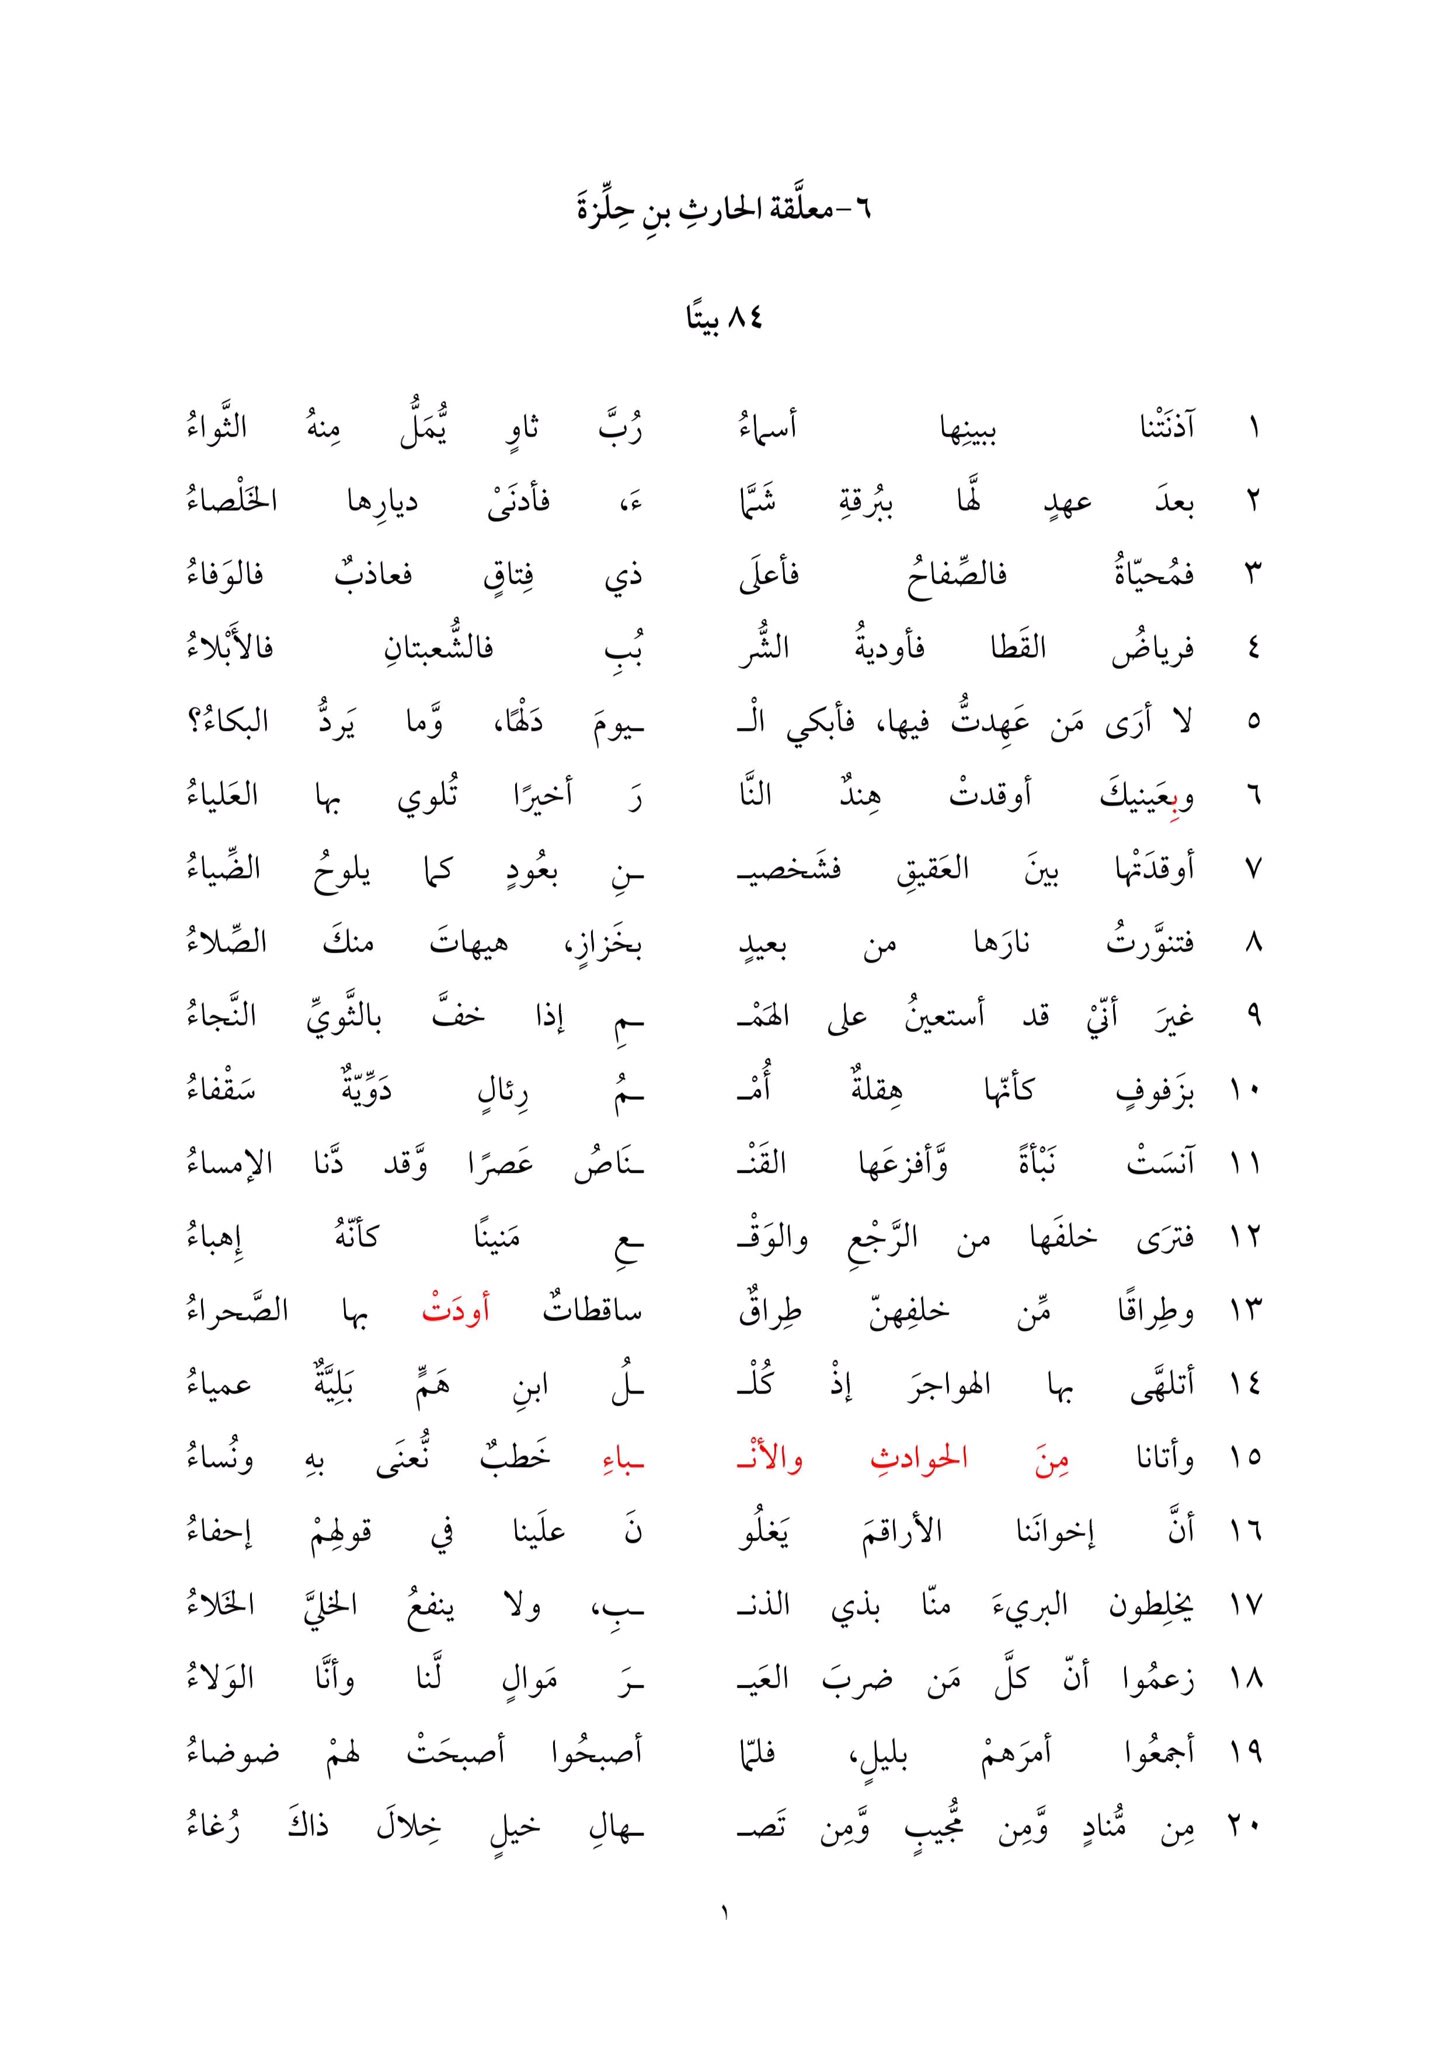 ٦-معلَّقة الحارثِ بنِ حِلِّزةَ
٨٤ بيتًا
١ آذنَتْنا ببينِها أسماءُ رُبَّ ثاوٍ يُّمَلُّ مِنهُ الثَّواءُ
٢ بعدَ عهدٍ لَّها ببُرقةِ شَمَّا ءَ، فأدنَىْ ديارِها الخَلْصاءُ
٣ فمُحيّاةُ فالصِّفاحُ فأعلَى ذي فِتاقٍ فعاذبٌ فالوَفاءُ
٤ فرياضُ القَطا فأوديةُ الشُّر بُبِ فالشُّعبتانِ فالأَبْلاءُ
٥ لا أرَى مَن عَهِدتُّ فيها، فأبكي الْـ ـيومَ دَلْهًا، وَّما يَردُّ البكاءُ؟
٦ وبِعَينيكَ أوقدتْ هِندٌ النَّا رَ أخيرًا تُلوي بها العَلياءُ
٧ أوقدَتْها بينَ العَقيقِ فشَخصيـ ـنِ بعُودٍ كما يلوحُ الضِّياءُ
٨ فتنوَّرتُ نارَها من بعيدٍ بخَزازٍ، هيهاتَ منكَ الصِّلاءُ
٩ غيرَ أنّيْ قد أستعينُ على الهَمْـ ـمِ إذا خفَّ بالثَّويِّ النَّجاءُ
١٠ بزَفوفٍ كأنّها هِقلةٌ أُمْـ ـمُ رِئالٍ دَوِّيّةٌ سَقْفاءُ
١١ آنسَتْ نَبْأةً وَّأفزعَها القَنْـ ـنَاصُ عَصرًا وَّقد دَّنا الإمساءُ
١٢ فترَى خلفَها من الرَّجْعِ والوَقْـ ـعِ مَنينًا كأنّهُ إِهباءُ
١٣ وطِراقًا مِّن خلفِهنّ طِراقٌ ساقطاتٌ أودَتْ بها الصَّحراءُ
١٤ أتلهَّى بها الهواجرَ إذْ كُلْـ ـلُ ابنِ هَمٍّ بَلِيَّةٌ عمياءُ
١٥ وأتانا مِنَ الحوادثِ والأنْـ ـباءِ خَطبٌ نُّعنَى بهِ ونُساءُ
١٦ أنَّ إخوانَنا الأراقمَ يَغلُو نَ علَينا في قولِهِمْ إحفاءُ
١٧ يخلِطون البريءَ منّا بذي الذنـ ـبِ، ولا ينفعُ الخليَّ الخَلاءُ
١٨ زعمُوا أنّ كلَّ مَن ضربَ العَيـ ـرَ مَوالٍ لَّنا وأنَّا الوَلاءُ
١٩ أجمعُوا أمرَهمْ بليلٍ، فلمّا أصبحُوا أصبحَتْ لهمْ ضوضاءُ
٢٠ مِن مُّنادٍ وَّمِن مُّجيبٍ وَّمِن تَصـ ـهالِ خيلٍ خِلالَ ذاكَ رُغاءُ
١